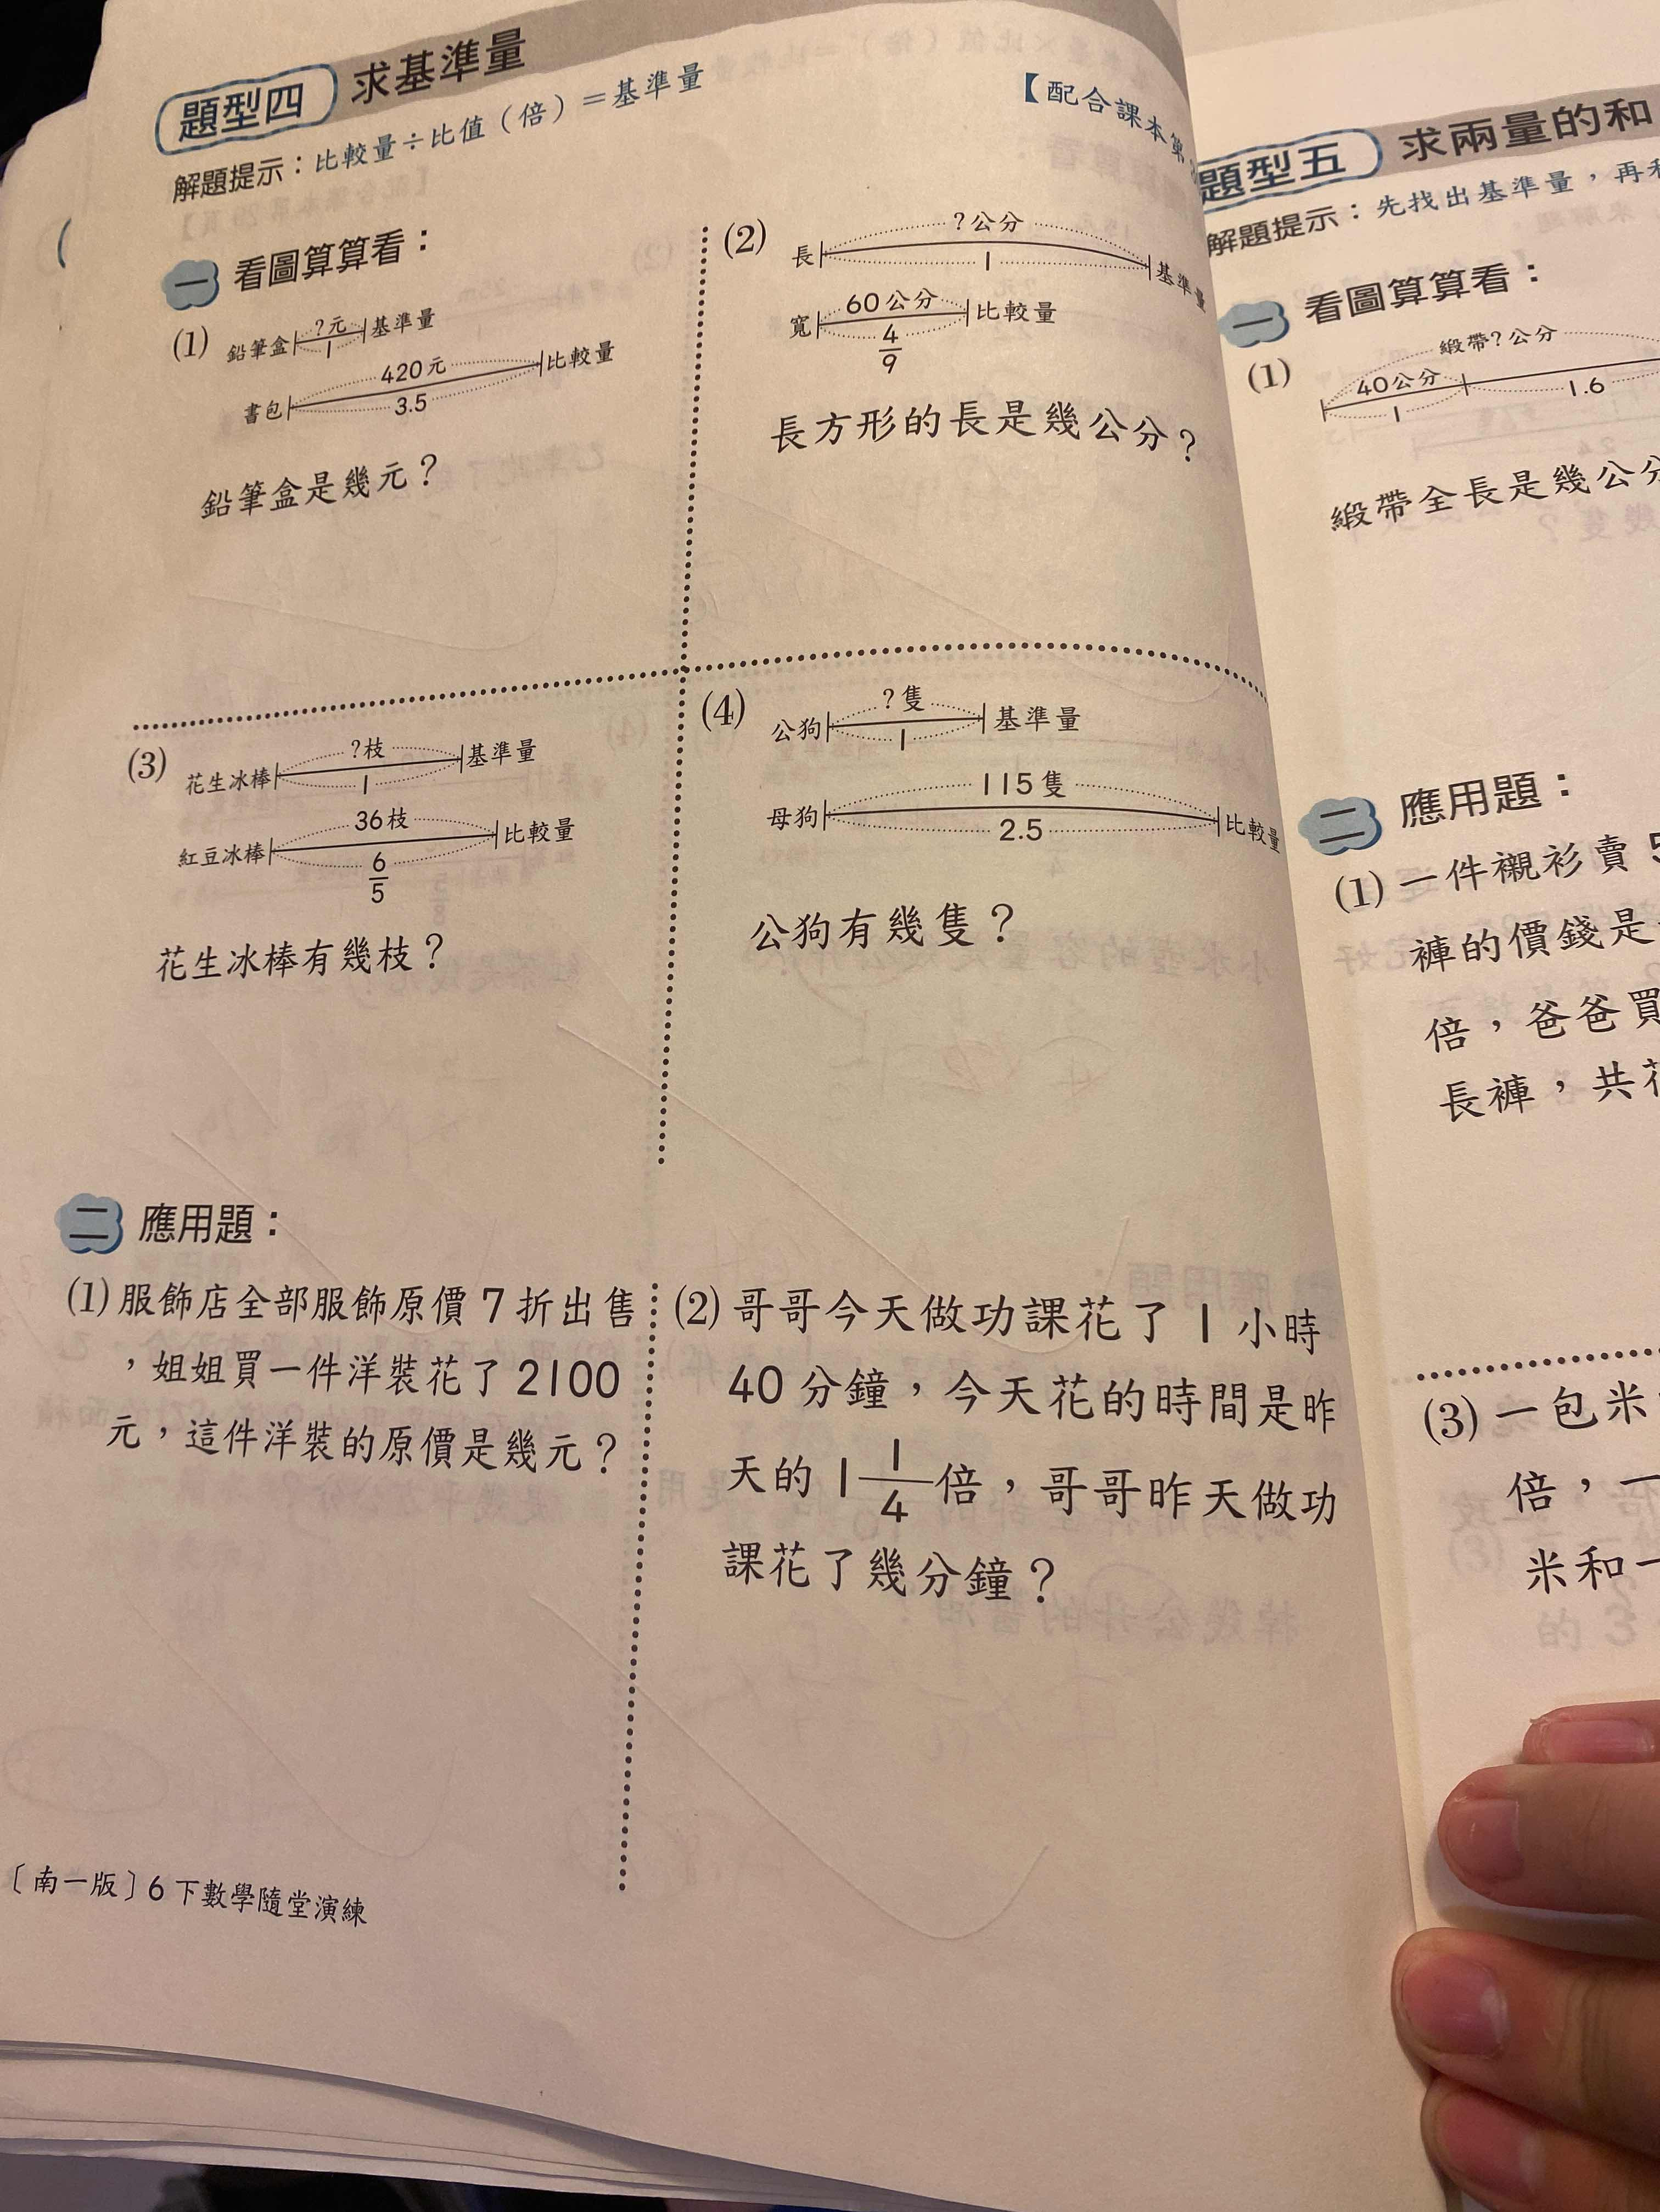 題型四 求基準量
解題提示：比較量÷比值（倍）＝基準量
【配合課本第
一 看圖算算看：
(1)
?元
鉛筆盒 基準量
1
420元
書包 比較量
3.5
鉛筆盒是幾元？
(2)
?公分
長 基準量
1
60公分
寬 比較量
4/9
長方形的長是幾公分？
(3)
?枝
花生冰棒 基準量
1
36枝
紅豆冰棒 比較量
6/5
花生冰棒有幾枝？
(4)
?隻
公狗 基準量
1
115隻
母狗 比較量
2.5
公狗有幾隻？
二 應用題：
(1) 服飾店全部服飾原價7折出售
，姐姐買一件洋裝花了2100
元，這件洋裝的原價是幾元？
(2) 哥哥今天做功課花了1小時
40分鐘，今天花的時間是昨
天的1 1/4倍，哥哥昨天做功
課花了幾分鐘？
〔南一版〕6下數學隨堂演練
題型五 求兩量的和
解題提示：先找出基準量，再
一 看圖算算看：
(1)
緞帶?公分
40公分
1
1.6
緞帶全長是幾公分
二 應用題：
(1) 一件襯衫賣5
褲的價錢是
倍，爸爸買
長褲，共花
(3) 一包米
倍，一
米和一